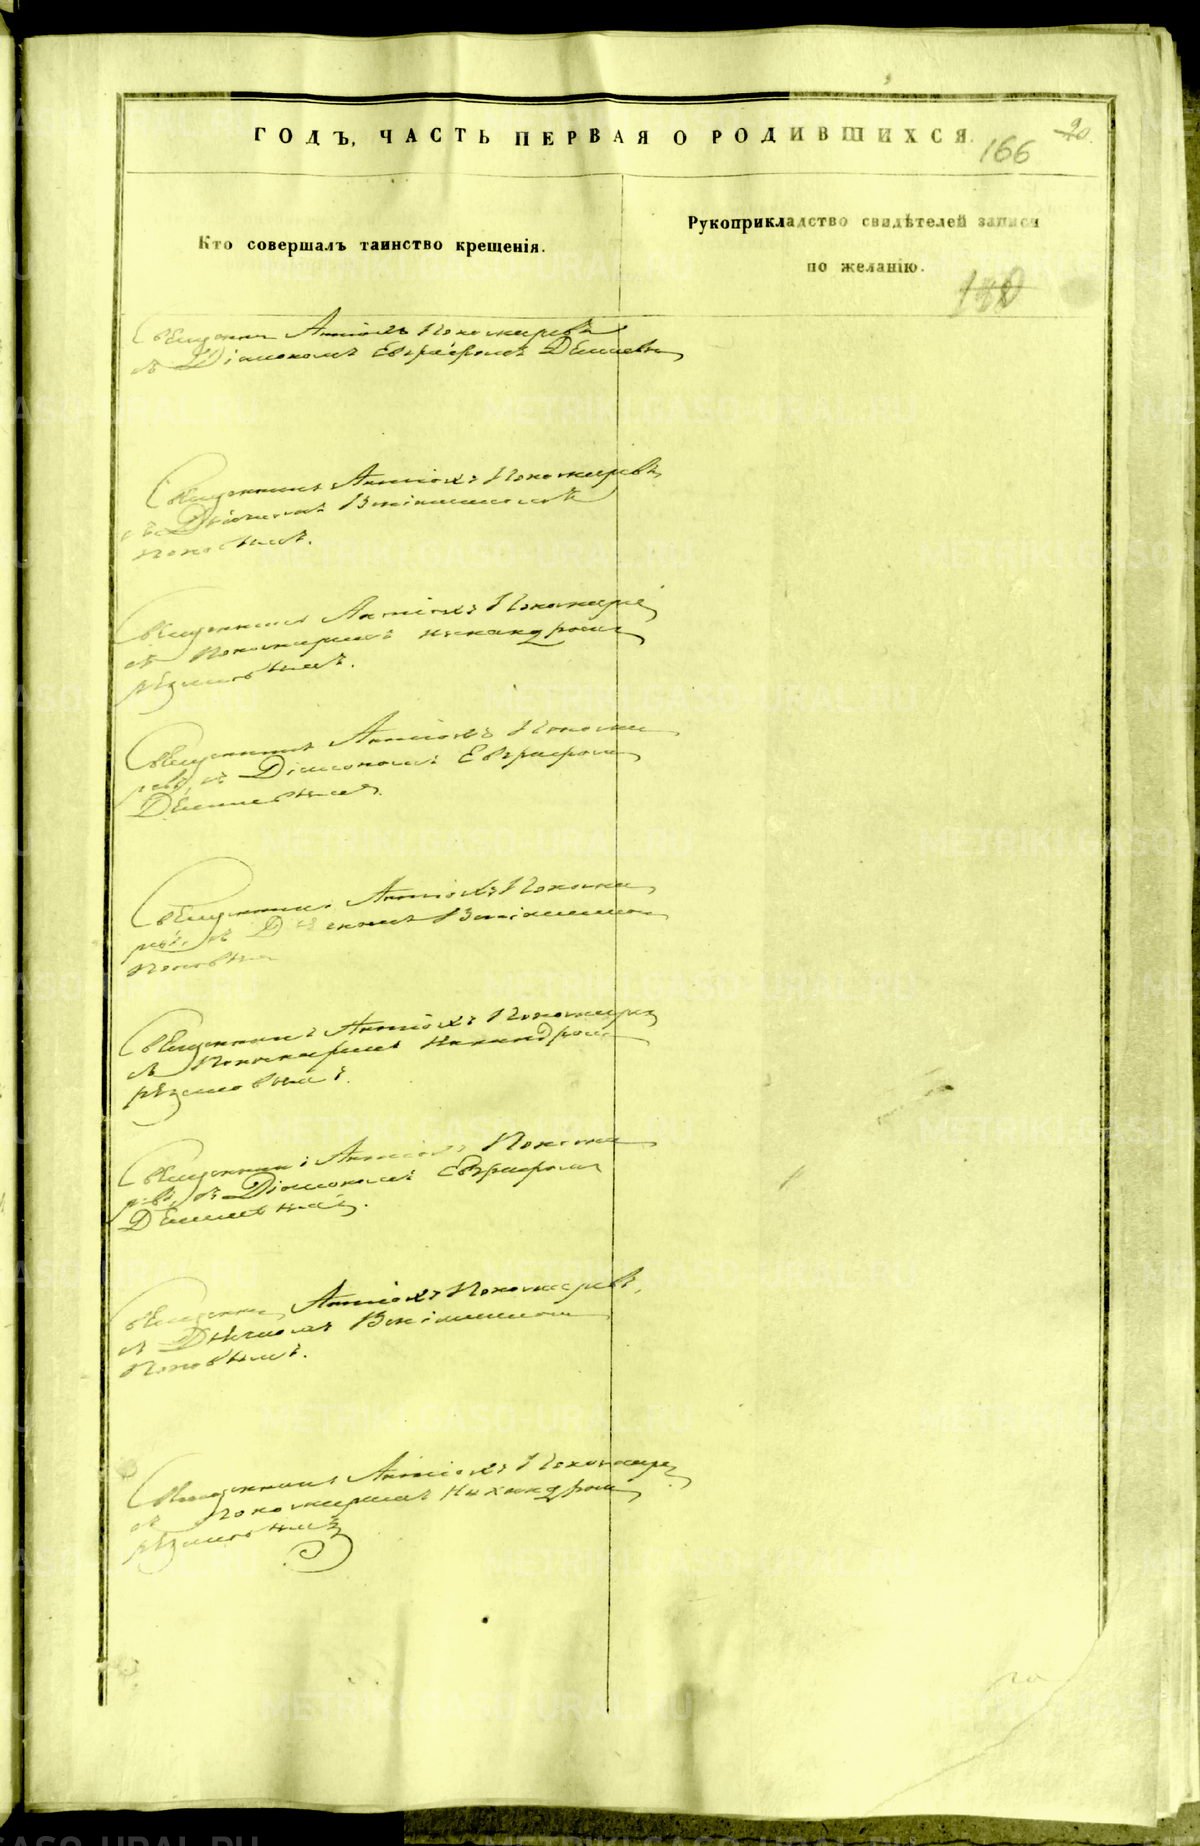 ГОДЪ, ЧАСТЬ ПЕРВАЯ О РОДИВШИХСЯ.
166
20.
Кто совершалъ таинство крещенія.
Рукоприкладство свидѣтелей записи
по желанію.
Священникъ Антіохъ Пономаревъ
съ Діакономъ Евграфомъ
Священникъ Антіохъ Пономаревъ,
съ Діакономъ Веніаминомъ
Поповымъ.
Священникъ Антіохъ Пономаре
съ Пономаремъ Никандромъ
Священникъ Антіохъ Понома
ревъ, съ Діакономъ Евграфомъ
Священникъ Антіохъ Понома
ревъ, съ Діакономъ Веніаминомъ
Поповымъ
Священникъ Антіохъ Пономаре
съ Пономаремъ Никандромъ
Священникъ Антіохъ Понома
ревъ, съ Діакономъ Евграфомъ
Священникъ Антіохъ Пономаревъ,
съ Діакономъ Веніаминомъ
Поповымъ.
Священникъ Антіохъ Пономаре
съ Пономаремъ Никандромъ
METRIKI.GASO-URAL.RU